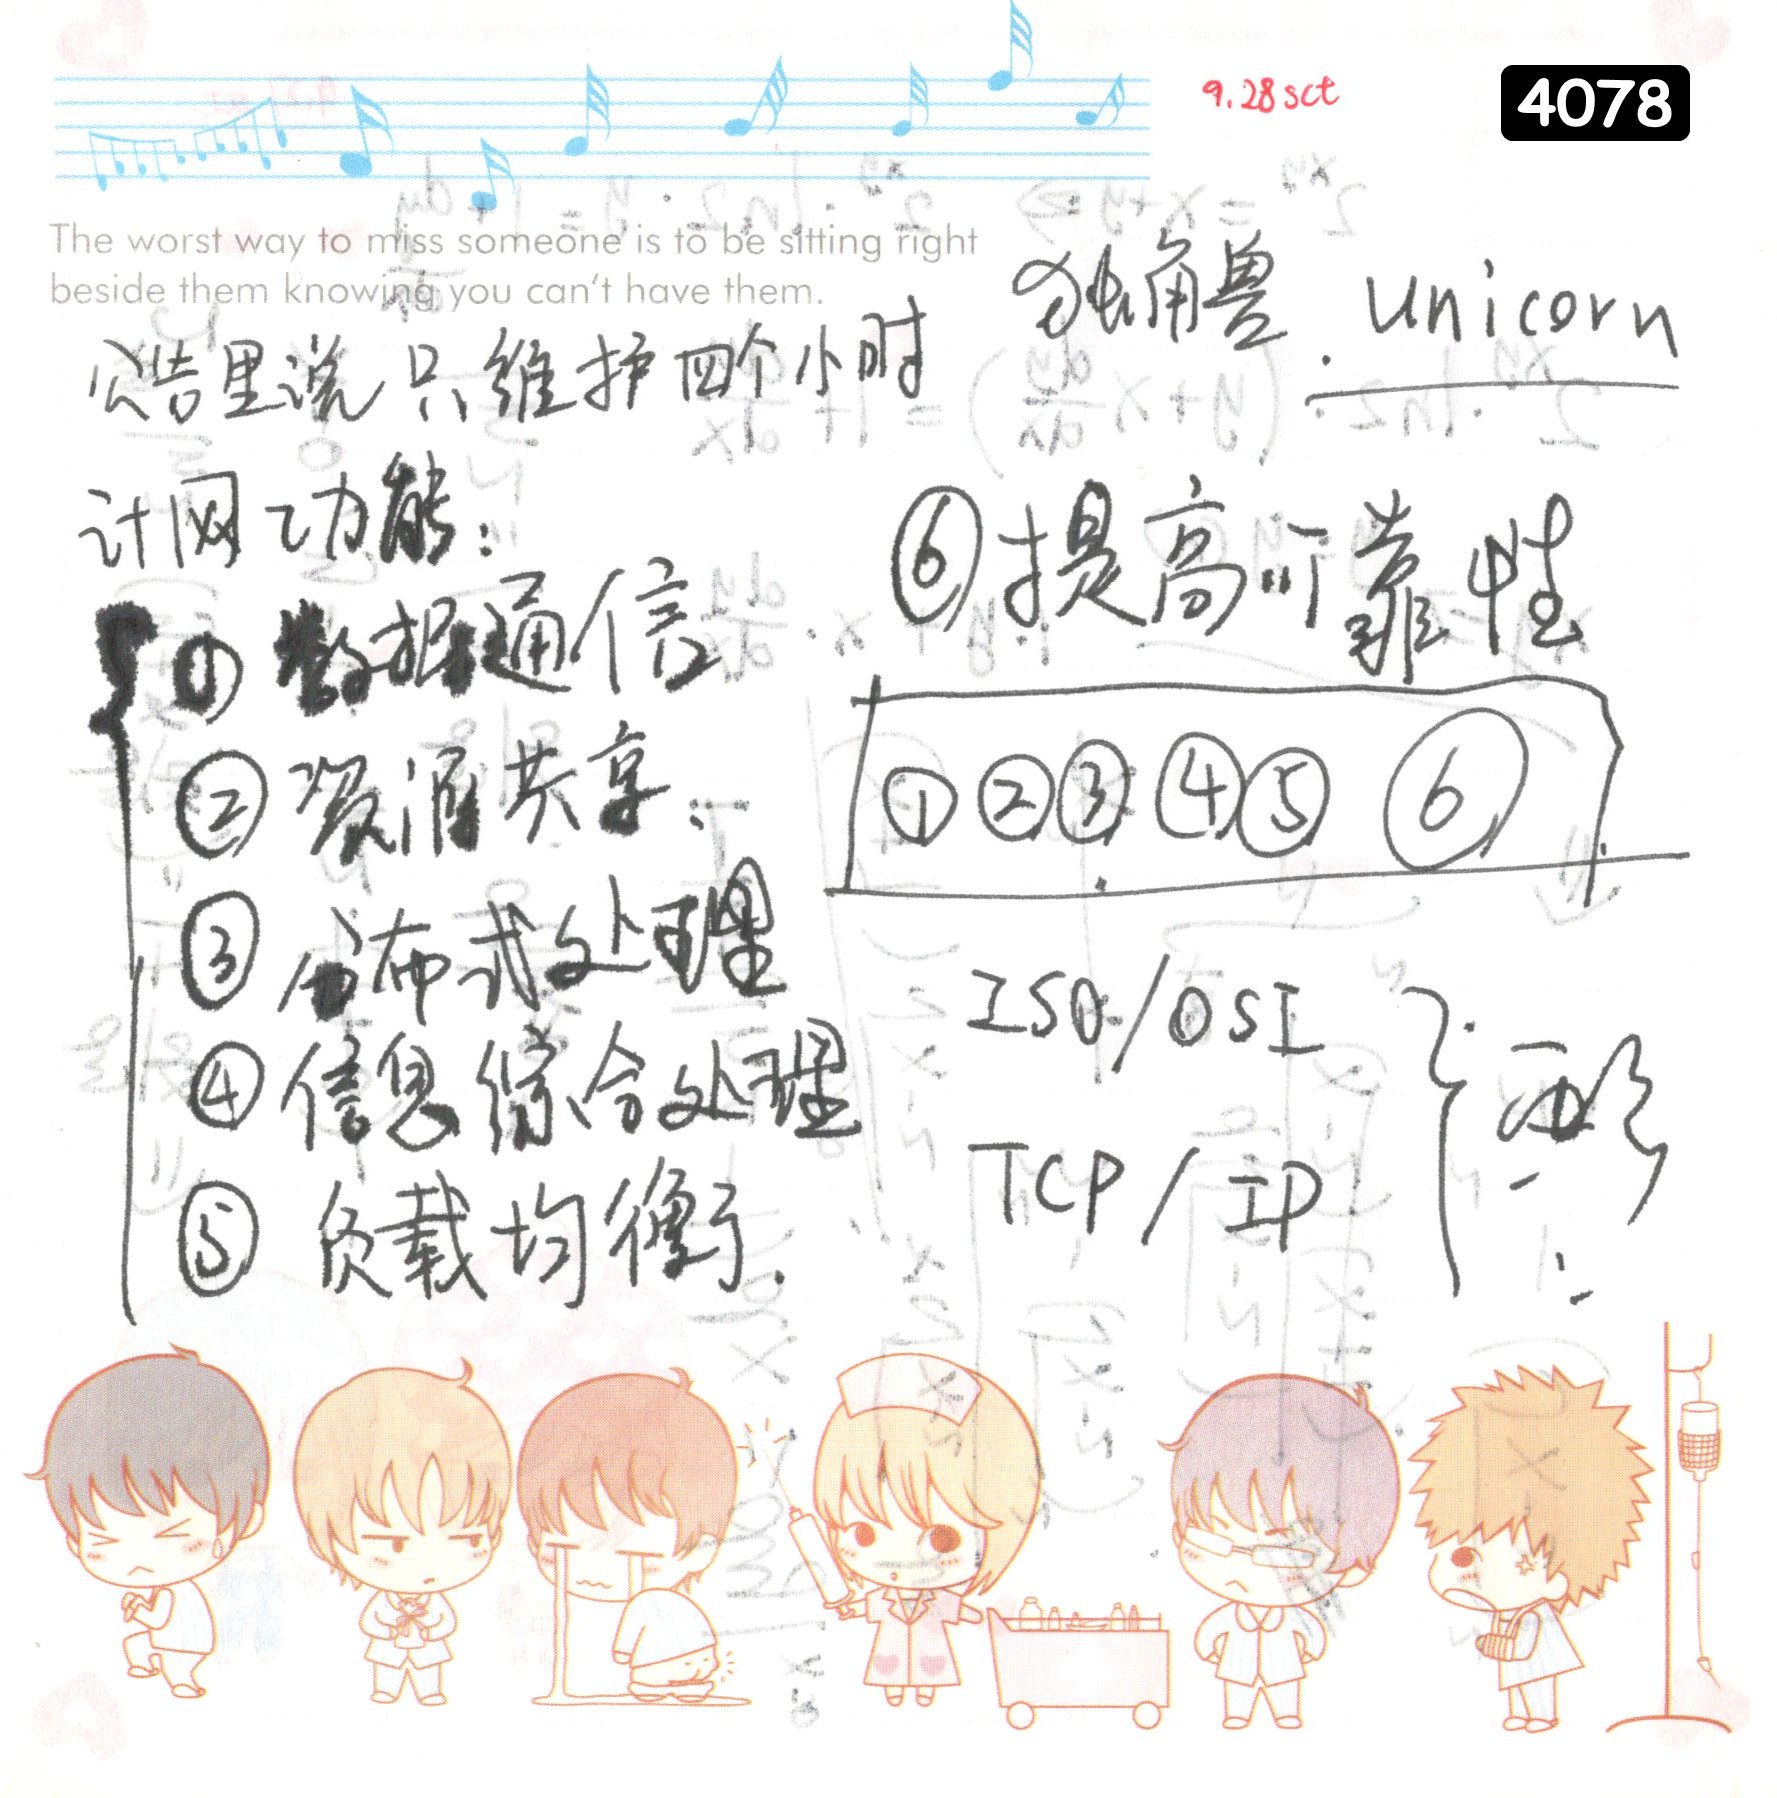 9.28 sct
4078
The worst way to miss someone is to be sitting right
beside them knowing you can't have them.
独角兽. unicorn
公告里说只维护四个小时
计网功能:
① 数据通信
② 资源共享.
③ 分布式处理
④ 信息综合处理
⑤ 负载均衡.
⑥ 提高可靠性
① ② ③ ④ ⑤ ⑥
ISO/OSI
TCP/IP